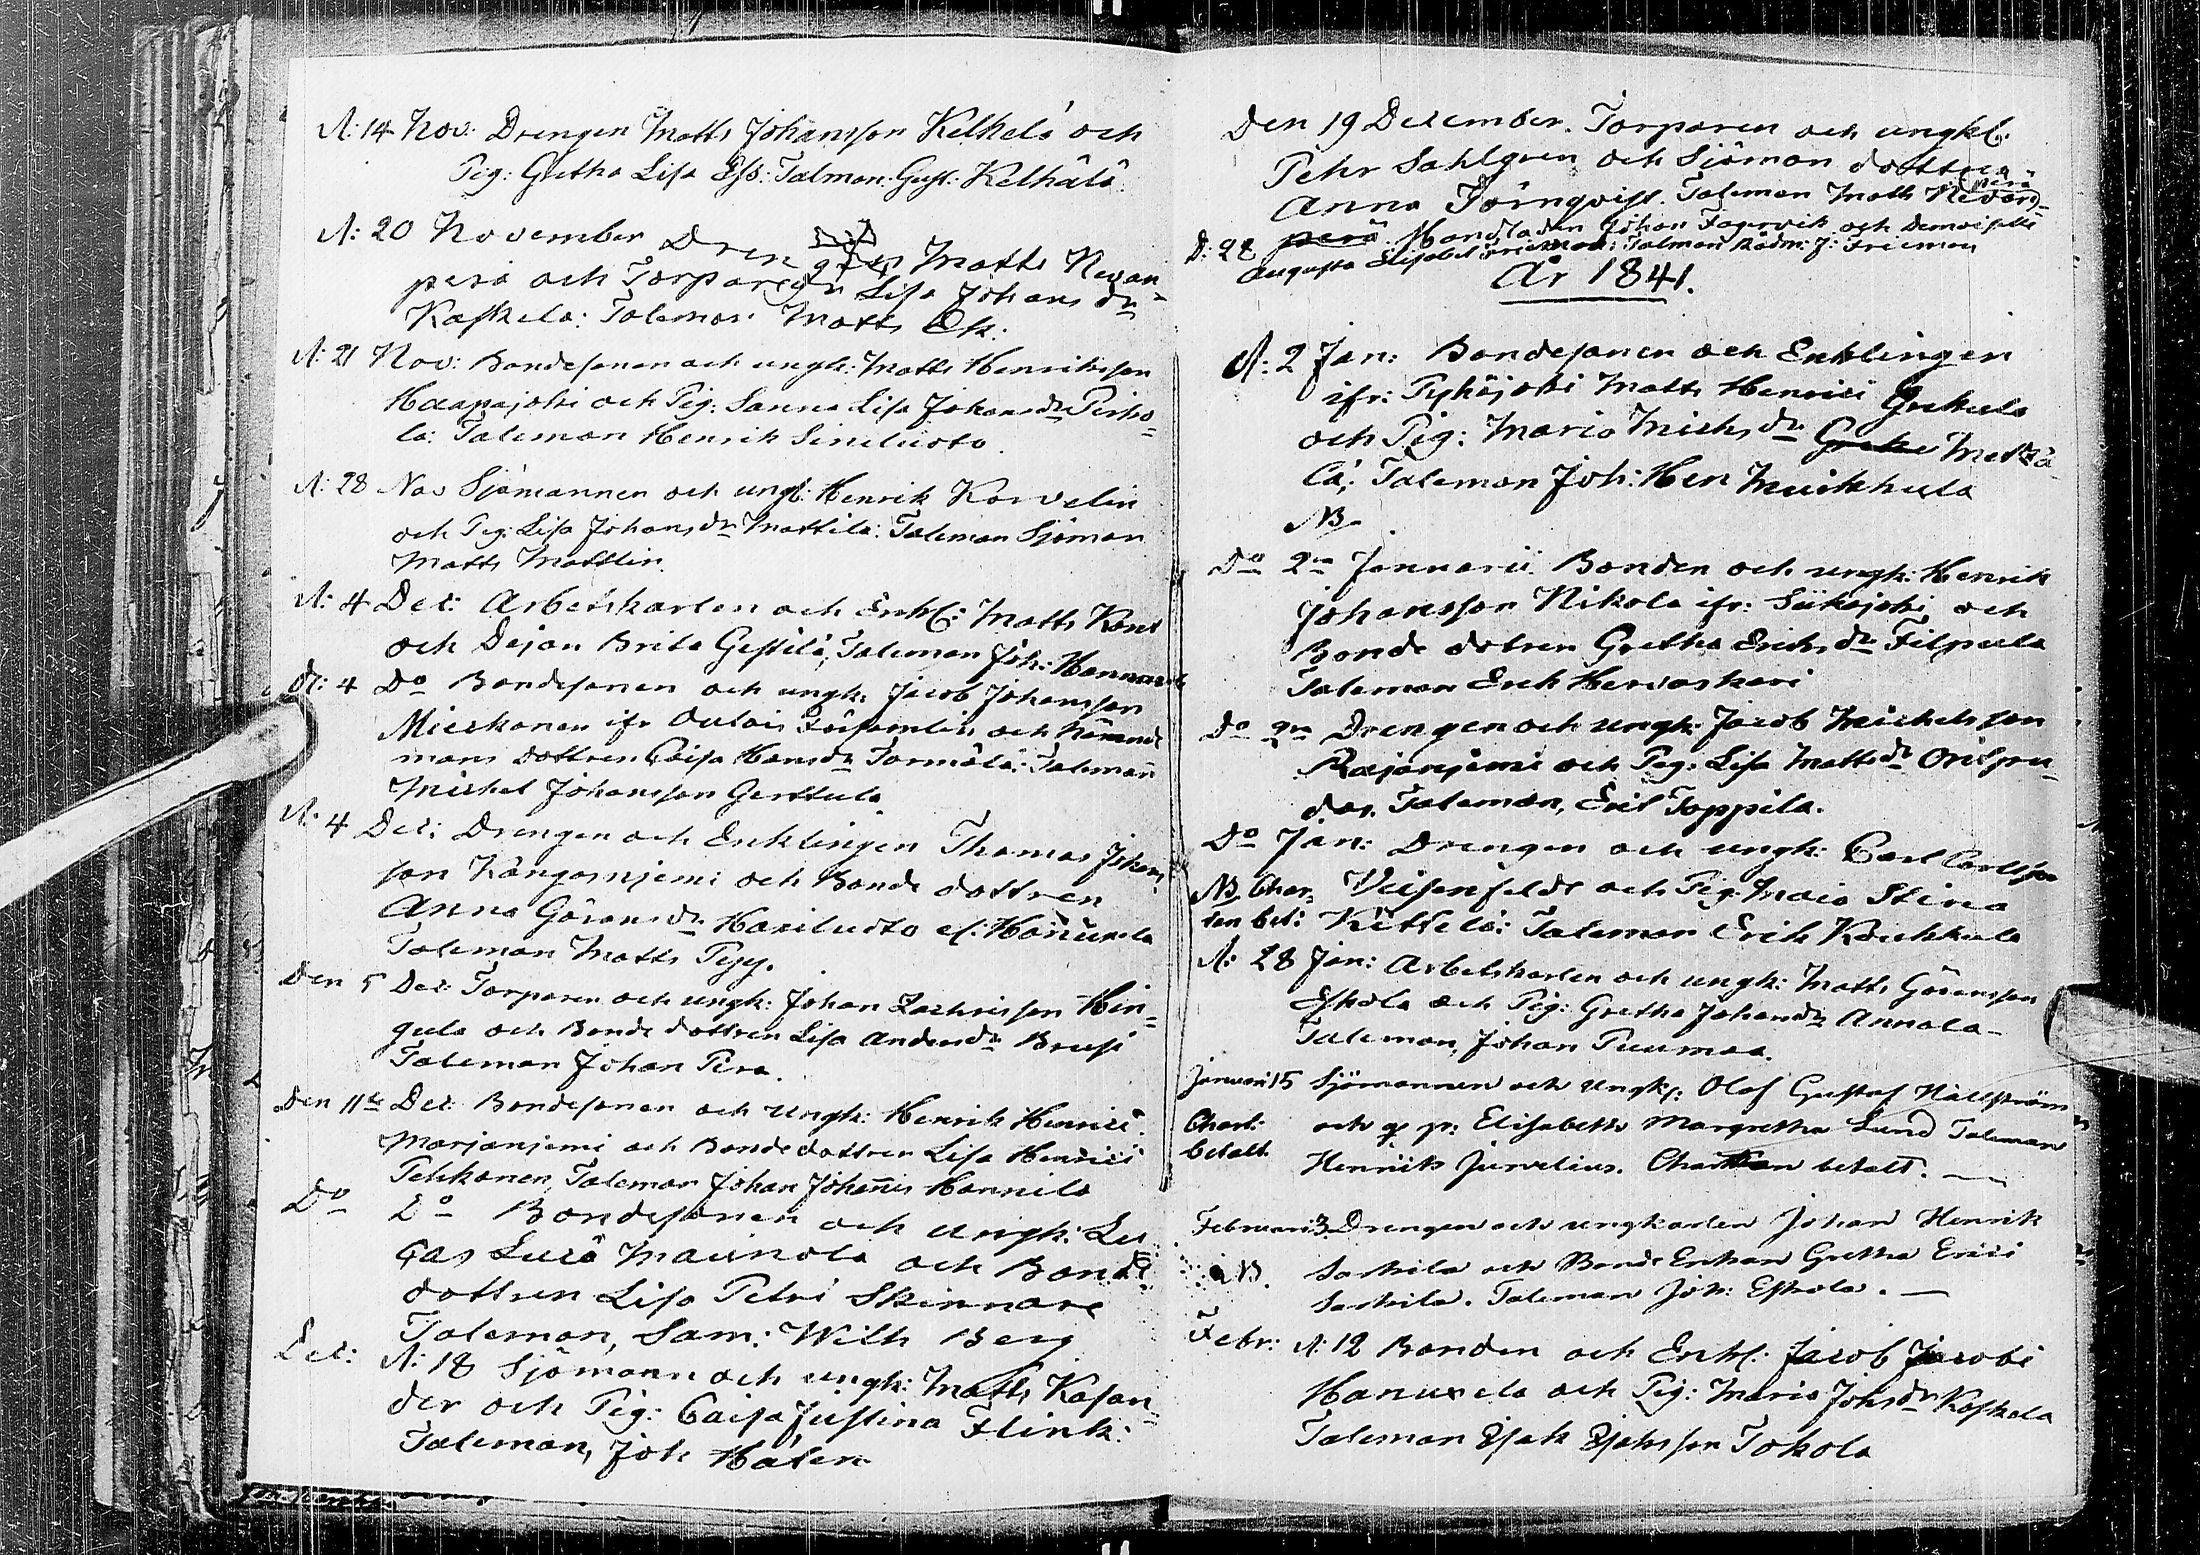 d: 14 Nov: Drengen Matts Johansson Kelhelä och
Pig: Gretha Lisa Ess: Talman: Gust: Kelhälä
d: 20 November Drengen Matts Nevan-
perä och Torpare Lisa Johansdr
Kaskela: Taleman Matts
d: 21 Nov: Bondesonen och ungk: Matts Henriksson
Haapajoki och Pig: Sanna Lisa Johansdr Pirho-
la: Taleman Henrik Siniluoto.
d: 28 Nov Sjömannen och ungk: Henrik Korvelin
och Pig: Lisa Johansdr Mattila: Taleman Sjöman
Matts Mattlin.
d: 4 Dec: Arbetskarlen och Enkl: Matts Kant
och Dejan Brita Gestilä, Taleman Joh: Hannu
d: 4 Do Bondesonen och ungk: Jacob Johansson
Mieskonen ifr Oulais Församling och Nämnde
mans dottren Caisa Hansdr Tormälä: Taleman
Michel Johansson Gerttula
d: 4 Dec: Drengen och Enklingen Thomas Johans
son Kångasnjemi och Bonde dottren
Anna Göransdr Hariluoto el: Hanuxela
Taleman Matts Pyy.
Den 5 Dec: Torparen och ungk: Johan Zachrisson Hin-
gula och Bonde dottren Lisa Andersdr Brusi
Taleman Johan Pera.
Den 11te Dec: Bondesonen och ungk: Henrik Henrici
Marjanjemi och Bondedottren Lisa Henrici
Pehkonen, Taleman Johan Johannis Hannila
Do Do Bondesonen och ungk: Lu-
cas Lucä Mainola och Bonde
dottren Lisa Petri Skinnare
Taleman, Sam: Wilh Berg
Dec: d: 18 Sjöman och ungk: Matts Kasan-
der och Pig: Caisa Justina Flink:
Taleman, Joh Hålen
Den 19 December. Torparen och ungkl:
Pehr Sahlgren och Sjöman dottren
Anna Törnqvist. Taleman Matts Nevan-
perä
D: 22 Handladen Johan Fagervik och Demoiselle
Augusta Elisabet Frieman: Talman Rådm: J: Frieman
År 1841.
d: 2 Jan: Bondesonen och Enklingen
ifr: Pyhäjoki Matts Henrici Grekula
och Pig: Maria Michsdr Metzä
lä; Taleman Joh: Hen Muikkula
NB
Do 2en Januarii Bonden och ungk: Henrik
Johansson Nikola ifr: Siikajoki och
Bonde dotren Gretha Ericsdr Filpula
Taleman Erik Hervaskari
Do 2en Drengen och ungk: Jacob Michelsson
Rajanjemi och Pig: Lisa Mattsdr Orispu-
das. Taleman, Eric Toppila.
Do Jan: Drengen och ungk: Carl Carlsson
NB Char- Veisenfeldt och Pig: Maia Stina
ten bet: Kittelä: Taleman Erik Koukkula
d: 28 Jan: Arbetskarlen och ungk: Matts Göransson
Eskola och Pig: Gretha Johansdr Annala
Taleman, Johan Puumaa.
Januari 15 Sjömannen och ungk: Olof Gustaf Hällström
Chart: och p: Elisabeth Margretha Lund Taleman
betalt Henrik Jurvelius. Chartan betalt.
Februari 3 Drengen och ungkarlen Johan Henrik
NB. Saskila och Bonde Enkan Gretha Erici
Saskila. Taleman Joh: Eskola.
Febr: d: 12 Bonden och Enkl: Jacob Jacobi
Hanuxela och Pig: Maria Johsdr Koskela
Taleman Isak Isaksson Tokola